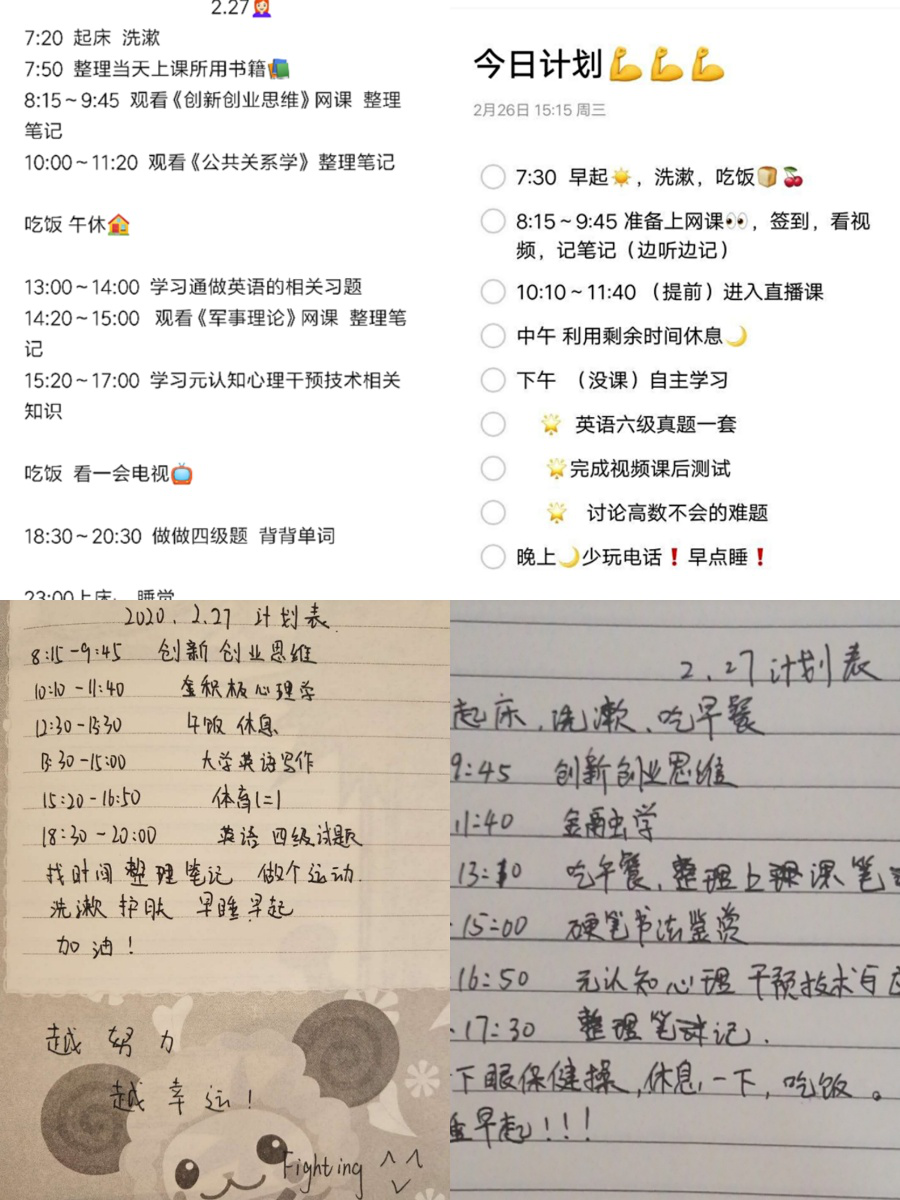 2.27
7:20 起床 洗漱
7:50 整理当天上课所用书籍
8:15~9:45 观看《创新创业思维》网课 整理
笔记
10:00~11:20 观看《公共关系学》 整理笔记
吃饭 午休
13:00~14:00 学习通做英语的相关习题
14:20~15:00 观看《军事理论》网课 整理笔
记
15:20~17:00 学习元认知心理干预技术相关
知识
吃饭 看一会电视
18:30~20:30 做做四级题 背背单词
23:00上床 睡觉
今日计划
2月26日 15:15 周三
7:30 早起，洗漱，吃饭
8:15~9:45 准备上网课，签到，看视
频，记笔记（边听边记）
10:10~11:40 （提前）进入直播课
中午 利用剩余时间休息
下午 （没课）自主学习
英语六级真题一套
完成视频课后测试
讨论高数不会的难题
晚上少玩电话❗早点睡❗
2020. 2.27 计划表
8:15-9:45 创新创业思维
10:10-11:40 金积极心理学
12:30-13:30 午饭 休息
13:30-15:00 大学英语写作
15:20-16:50 体育(二)
18:30-20:00 英语 四级试题
找时间 整理笔记 做个运动.
洗漱 护肤 早睡早起
加油！
越努力
越幸运！
Fighting
2.27计划表
起床、洗漱、吃早餐
9:45 创新创业思维
11:40 金融学
13:10 吃午餐，整理上课笔
15:00 硬笔书法鉴赏
16:50 元认知心理干预技术与
17:30 整理笔记.
下眼保健操，休息一下，吃饭。
早起！！！